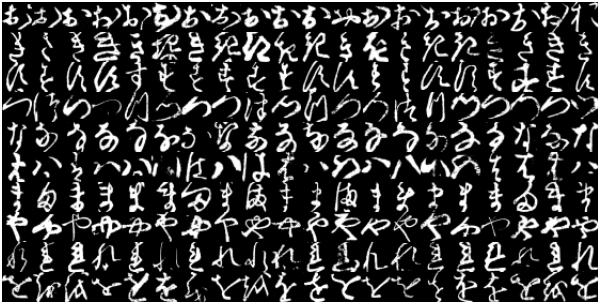 おおおおおおおおおおおおおおおおおおおお
きききききききききききききききききききき
すすすすすすすすすすすすすすすすすすすす
つつつつつつつつつつつつつつつつつつつつ
なななななななななななななななななななな
はははははははははははははははははははは
まままままままままままままままままままま
やややややややややややややややややややや
れれれれれれれれれれれれれれれれれれれれ
をををををををををををををををををををを